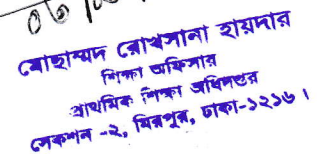 মোহাম্মদ রোখসানা হায়দার
শিক্ষা অফিসার
প্রাথমিক শিক্ষা অধিদপ্তর
সেকশন -২, মিরপুর, ঢাকা-১২১৬ ।